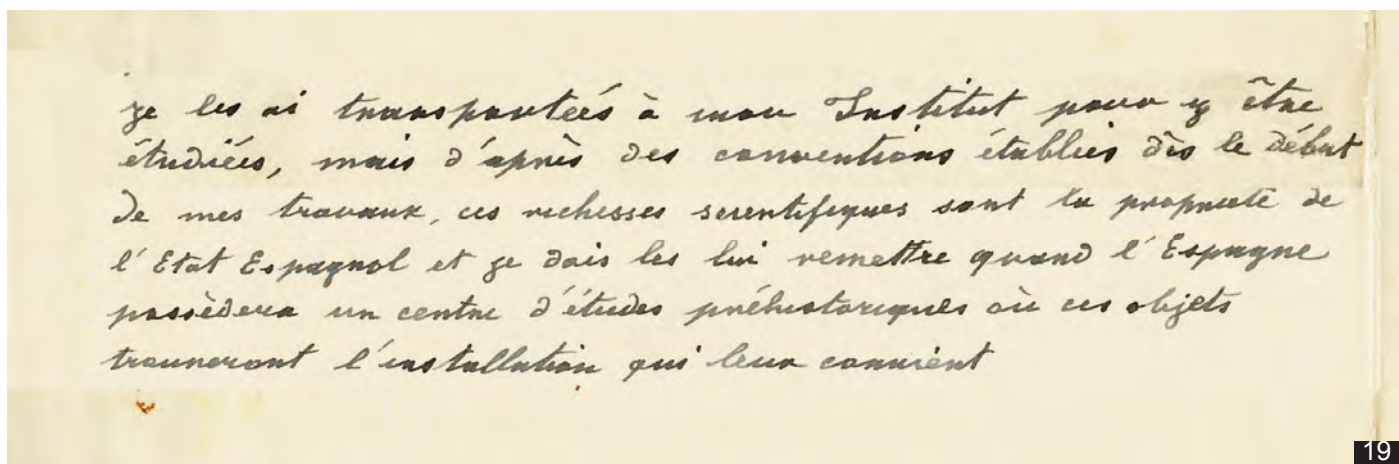 je les ai transportées à mon Institut pour y être
étudiées, mais d'après des conventions établies dès le début
de mes travaux, ces richesses scientifiques sont la propriété de
l'Etat Espagnol et je dois les lui remettre quand l'Espagne
possèdera un centre d'études préhistoriques où ces objets
trouveront l'installation qui leur convient
19